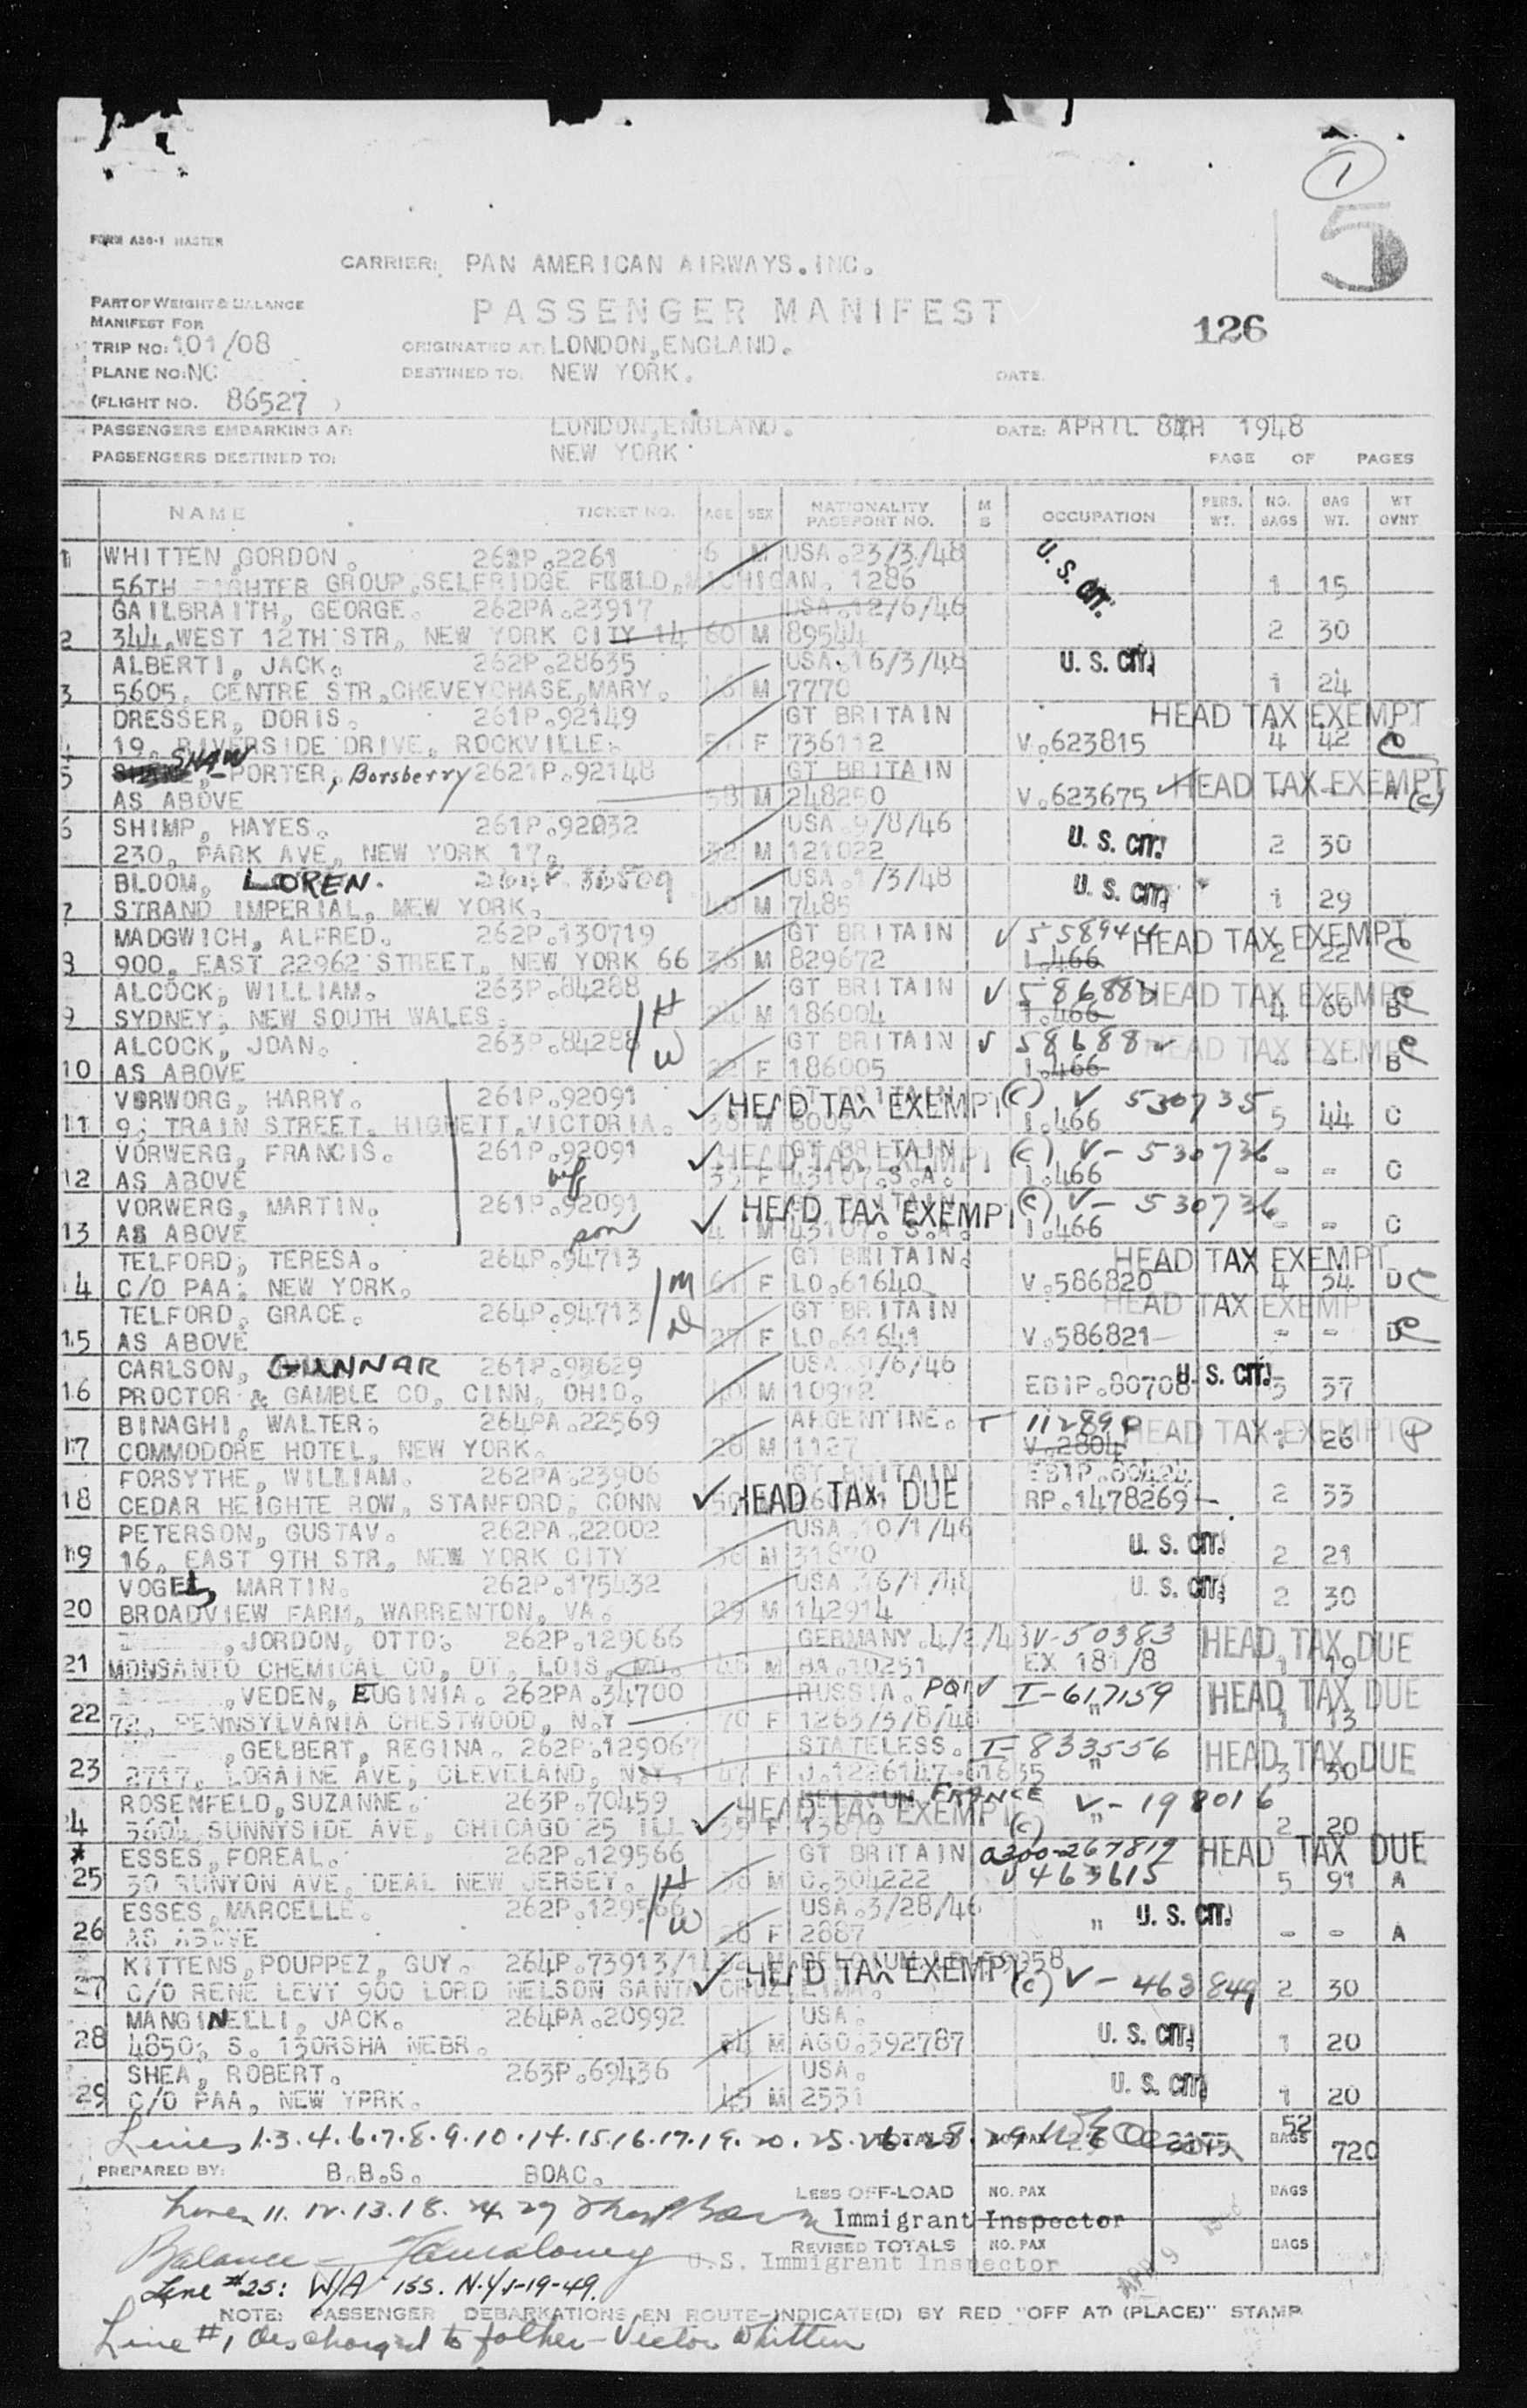 1
5
FORM A80-1 MASTER
CARRIER: PAN AMERICAN AIRWAYS.INC.
PART OF WEIGHT & BALANCE
PASSENGER MANIFEST
MANIFEST FOR
126
TRIP NO: 101/08 ORIGINATED AT: LONDON,ENGLAND.
PLANE NO: NC DESTINED TO: NEW YORK. DATE.
(FLIGHT NO. 86527 )
PASSENGERS EMBARKING AT: LONDON,ENGLAND. DATE: APRIL 8TH 1948
PASSENGERS DESTINED TO: NEW YORK
PAGE OF PAGES
NAME TICKET NO. AGE SEX NATIONALITY PASSPORT NO. M S OCCUPATION PERS. WT. NO. BAGS BAG WT. WT OVNT
1 WHITTEN,GORDON. 262P.2261 6 M USA.23/3/48 U.S. CIT.
56TH FIGHTER GROUP,SELFRIDGE FIELD,MICHICAN. 1286 1 15
GAILBRAITH, GEORGE. 262PA.23917 USA.12/6/46
2 344,WEST 12TH STR, NEW YORK CITY 14 60 M 89544 2 30
ALBERTI, JACK. 262P.28635 USA.16/3/48 U. S. CIT.
3 5605, CENTRE STR,CHEVEYCHASE,MARY. M 7770 1 24
DRESSER, DORIS. 261P.92149 GT BRITAIN HEAD TAX EXEMPT
19, RIVERSIDE DRIVE, ROCKVILLE. F 736112 V.623815 4 42 C
5 SHAW - PORTER, Borsberry 2621P.92148 GT BRITAIN HEAD TAX EXEMPT
AS ABOVE 58 M 248250 V.623675 - - A (C)
6 SHIMP, HAYES. 261P.92032 USA.9/8/46 U. S. CIT.
230, PARK AVE, NEW YORK 17, 32 M 121022 2 30
BLOOM, LOREN. USA.1/3/48 U. S. CIT.
7 STRAND IMPERIAL, MEW YORK. 48 M 7485 1 29
MADGWICH, ALFRED. 262P.130719 GT BRITAIN V 558944 HEAD TAX EXEMPT
8 900, EAST 22962 STREET, NEW YORK 66 36 M 829672 1.466 2 22 C
ALCOCK, WILLIAM. 263P.84288 H GT BRITAIN V HEAD TAX EXEMPT
9 SYDNEY, NEW SOUTH WALES. 24 M 186004 1.466 4 60 B C
ALCOCK, JOAN. 263P.84288 W GT BRITAIN V HEAD TAX EXEMPT
10 AS ABOVE 22 F 186005 1.466 - - B C
VORWORG, HARRY. 261P.92091 HEAD TAX EXEMPT (C) V 530735
11 9, TRAIN STREET. HIGHETT,VICTORIA. 38 M 1.466 5 44 C
VORWERG, FRANCIS. 261P.92091 GT BRITAIN HEAD TAX EXEMPT (C) V - 530736
12 AS ABOVE wf F 43107.S.A. 1.466 - - C
VORWERG, MARTIN. 261P.92091 HEAD TAX EXEMPT (C) V - 530736
13 AS ABOVE son 4 M 43107. S.A. 1.466 - - C
TELFORD, TERESA. 264P.94713 M GT BRITAIN. HEAD TAX EXEMPT
14 C/O PAA, NEW YORK. 61 F LO.61640 V.586820 4 54 D C
TELFORD, GRACE. 264P.94713 D GT BRITAIN HEAD TAX EXEMPT
15 AS ABOVE 27 F LO.61641 V.586821 - - D C
CARLSON, GUNNAR 261P.98629 USA.9/6/46 U. S. CIT.
16 PROCTOR & GAMBLE CO, CINN, OHIO. 40 M 10912 EBIP.80708 3 37
BINAGHI, WALTER. 264PA.22569 ARGENTINE. T HEAD TAX EXEMPT
17 COMMODORE HOTEL, NEW YORK. 28 M 1127 V.2804 1 26
FORSYTHE, WILLIAM. 262PA.23906 GT BRITAIN EBIP.80424
18 CEDAR HEIGHTE ROW, STANFORD, CONN HEAD TAX DUE RP.1478269 2 33
PETERSON, GUSTAV. 262PA.22002 USA.10/1/46 U. S. CIT.
19 16, EAST 9TH STR, NEW YORK CITY M 31870 2 21
VOGEL, MARTIN. 262P.175432 USA.16/1/48 U. S. CIT.
20 BROADVIEW FARM, WARRENTON, VA. 29 M 142914 2 30
,JORDON, OTTO. 262P.129066 GERMANY.4/2/43 V-50383 HEAD TAX DUE
21 MONSANTO CHEMICAL CO, DT, LOIS, MO. M BA.10251 EX 181/8 1 19
,VEDEN, EUGINIA. 262PA.34700 RUSSIA. PQIV I-617159 HEAD TAX DUE
22 72, PENNSYLVANIA CHESTWOOD, N.Y 70 F 1263/3/8/48 " 1 13
,GELBERT, REGINA. 262P.129067 STATELESS. I-833556 HEAD TAX DUE
23 2717, LORAINE AVE, CLEVELAND, N.Y. 47 F " 3 30
ROSENFELD,SUZANNE. 263P.70459 FRANCE V - 198016
24 3604,SUNNYSIDE AVE, CHICAGO 25 ILL HEAD TAX EXEMPT 39 F 13670 (C) " 2 20
* ESSES,FOREAL. 262P.129566 H GT BRITAIN a300-267819 HEAD TAX DUE
25 50 RUNYON AVE, DEAL NEW JERSEY. 38 M C.304222 V463615 5 91 A
ESSES,MARCELLE. 262P.129566 W USA.3/28/46 U. S. CIT.
26 AS ABOVE 28 F 2887 " - - A
KITTENS,POUPPEZ, GUY. 264P.73913/1 HEAD TAX EXEMPT
27 C/O RENE LEVY 900 LORD NELSON SANTA CRUZ,LIMA. (C) V - 463849 2 30
MANGINELLI, JACK. 264PA.20992 USA.
28 4850, S. 130RSHA NEBR. 34 M AGO.392787 U. S. CIT. 1 20
SHEA, ROBERT. 263P.69436 USA.
29 C/O PAA, NEW YPRK. 45 M 2531 U. S. CIT. 1 20
Lines 1.3.4.6.7.8.9.10.14.15.16.17.19.20.25.26.28.29 TOTALS NO. PAX 2175 BAGS 52 720
PREPARED BY: B.B.S. BOAC.
LESS OFF-LOAD NO. PAX BAGS
Lines 11.12.13.18.24.27
Immigrant Inspector
REVISED TOTALS NO. PAX BAGS
Balance -
U.S. Immigrant Inspector
Line #25: W/A iss. N.Y.
NOTE: PASSENGER DEBARKATIONS EN ROUTE-INDICATE(D) BY RED "OFF AT (PLACE)" STAMP
Line #1 discharged to father - Victor Whitten